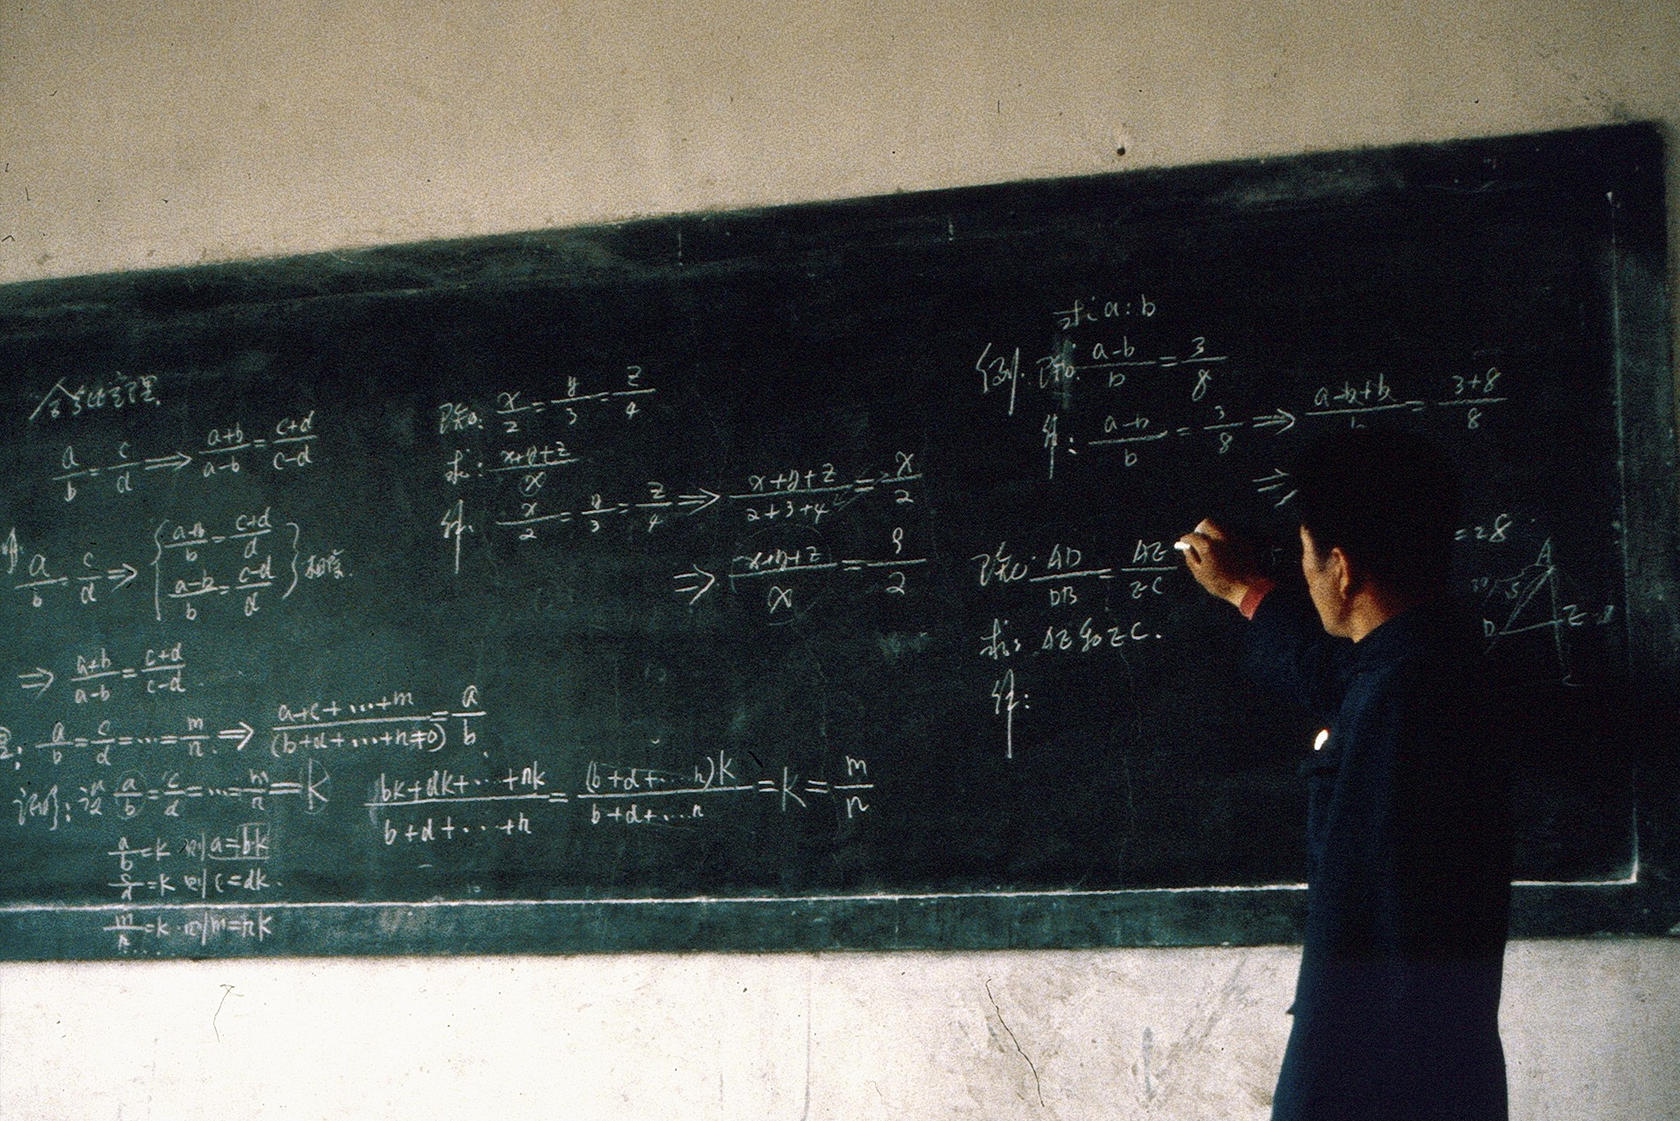 合分比定理.
a/b = c/d ⟹ (a+b)/(a-b) = (c+d)/(c-d)
a/b = c/d ⟹ { (a+b)/b = (c+d)/d
(a-b)/b = (c-d)/d } 相除.
⟹ (a+b)/(a-b) = (c+d)/(c-d).
a/b = c/d = ... = m/n ⟹ (a+c+...+m)/(b+d+...+n≠0) = a/b.
证明: 设 a/b = c/d = ... = m/n = K
a/b = K 则 a = bk
c/d = K 则 c = dk.
m/n = K 则 m = nk
(bk+dk+...+nk)/(b+d+...+n) = (b+d+...n)K/(b+d+...n) = K = m/n
已知: x/2 = y/3 = z/4
求: (x+y+z)/x
解: x/2 = y/3 = z/4 ⟹ (x+y+z)/(2+3+4) = x/2
⟹ (x+y+z)/x = 9/2
求 a:b
例. 已知: (a-b)/b = 3/8
解: (a-b)/b = 3/8 ⟹ (a-b+b)/b = (3+8)/8
⟹
已知: AD/DB = AE/EC
=28
求: AE和EC.
解:
A
D
E